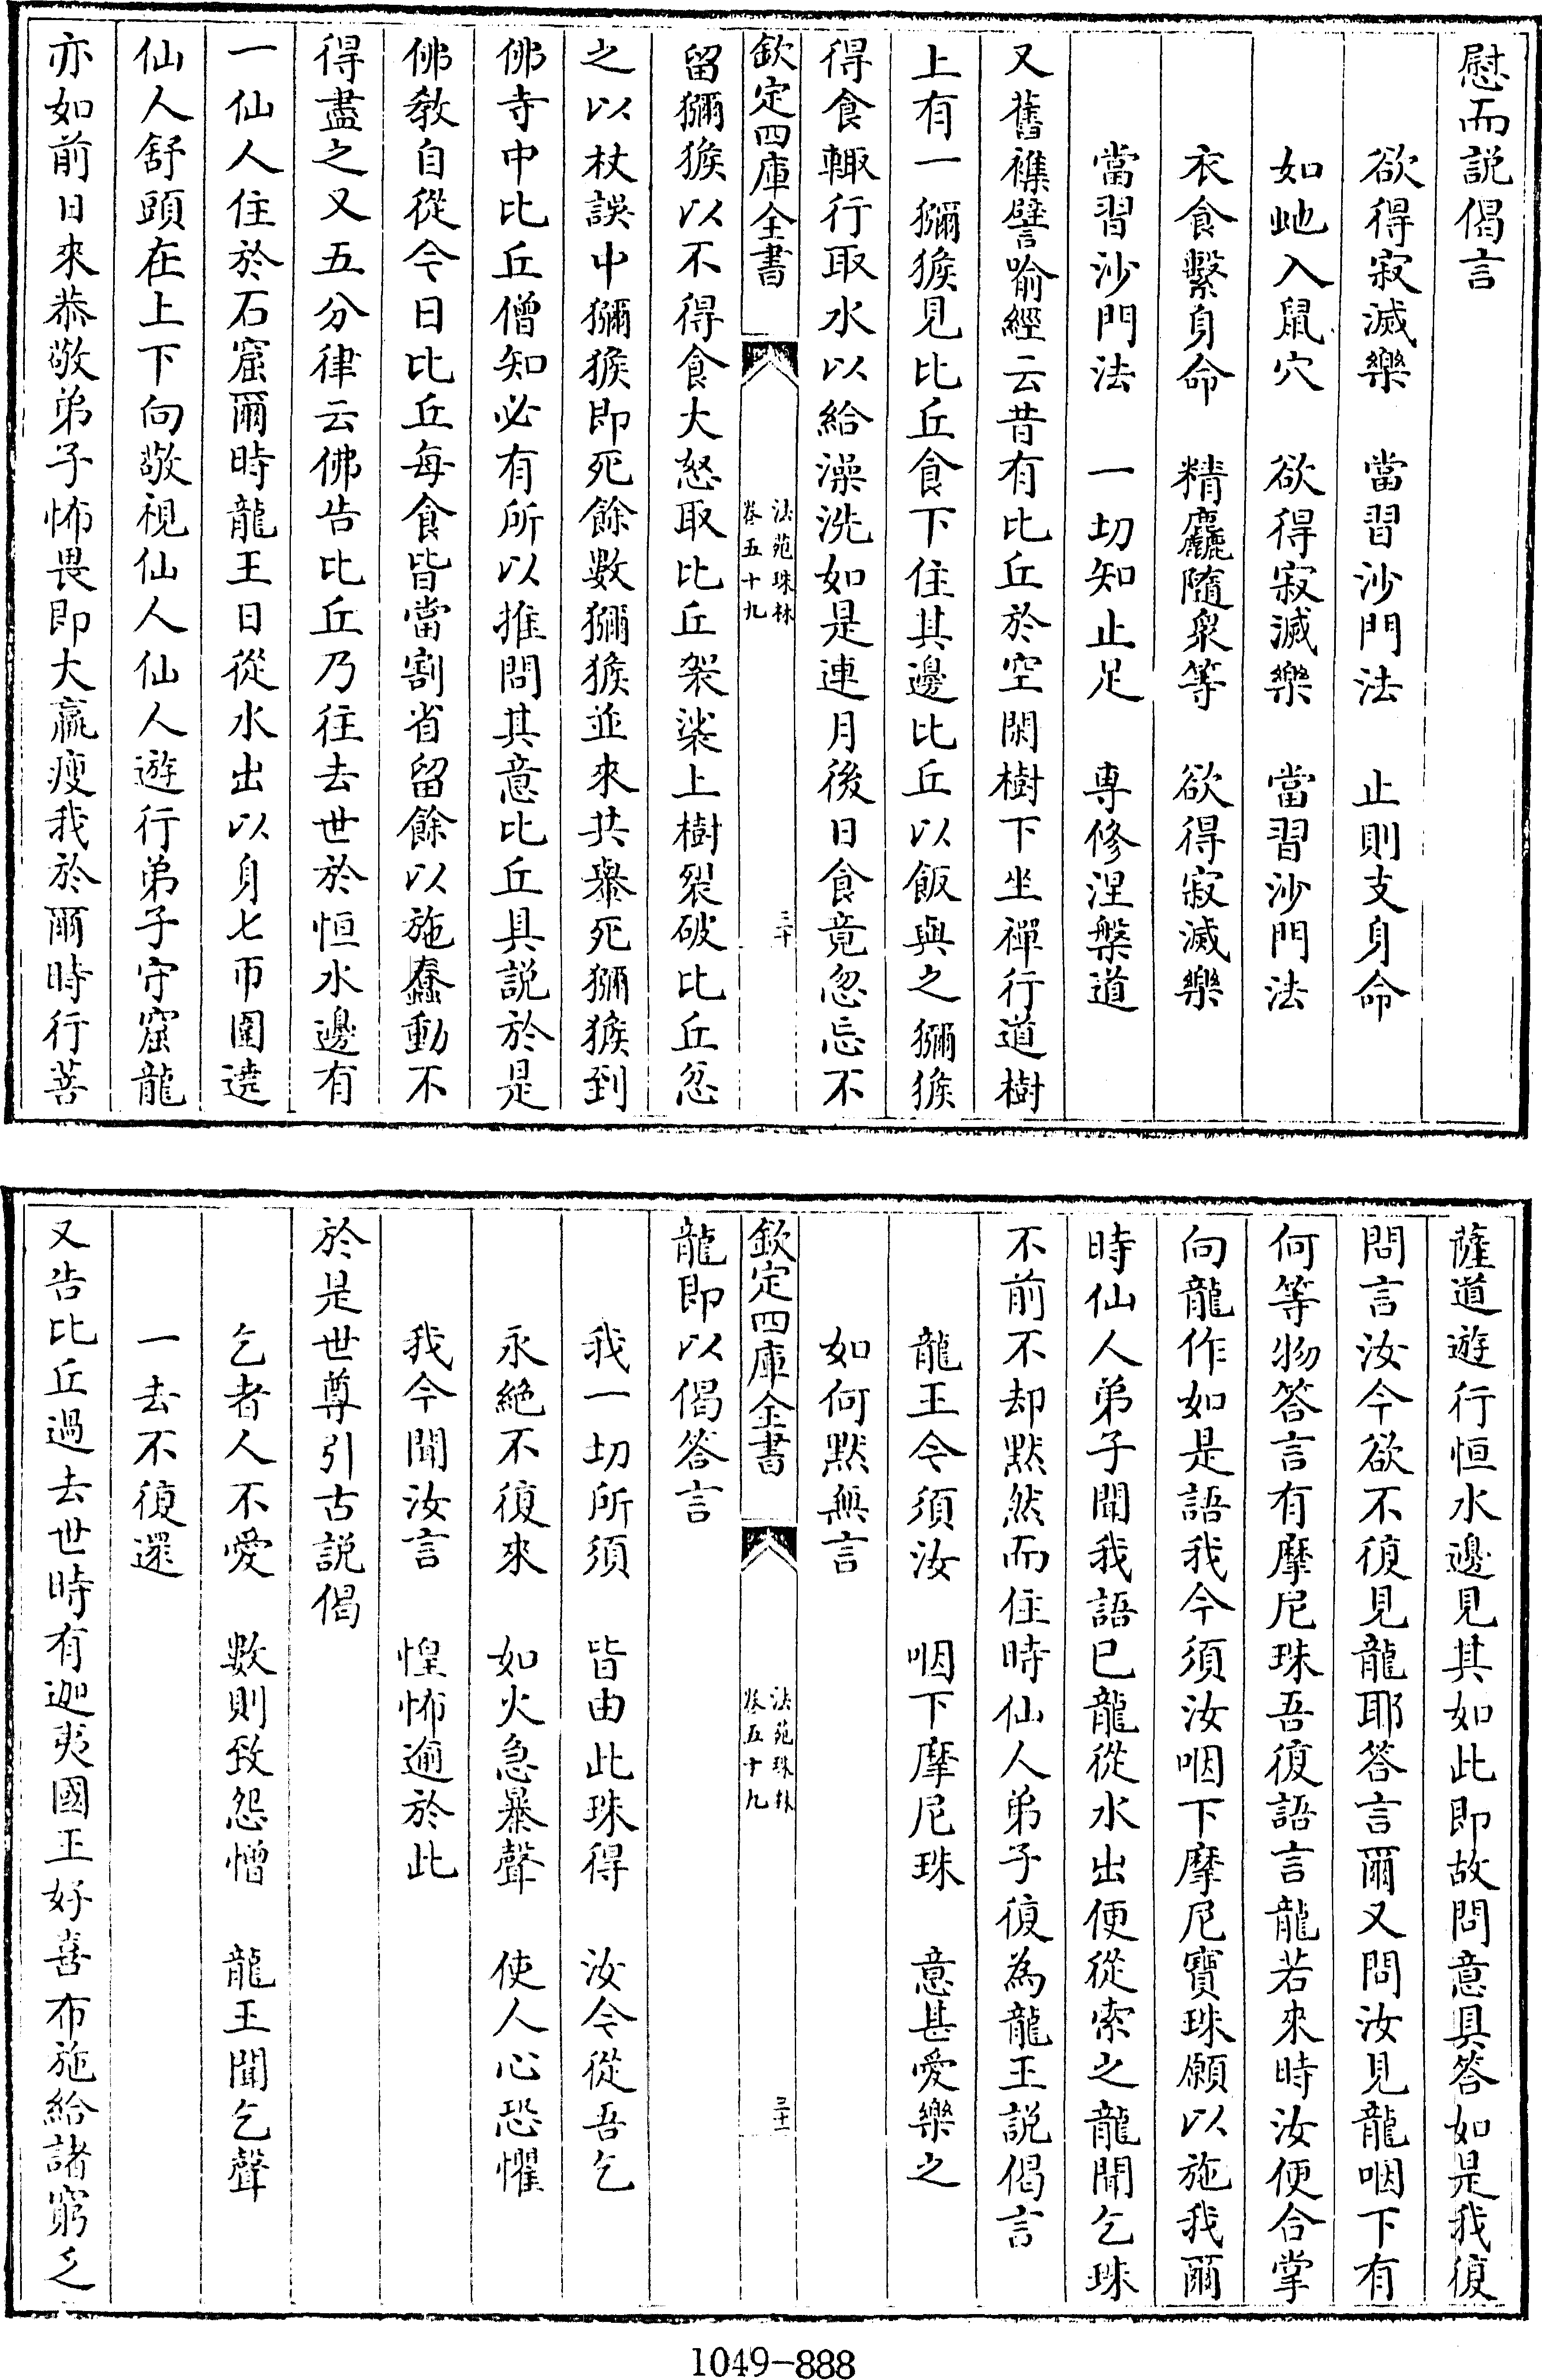 慰而説偈言
欲得寂滅樂　當習沙門法　止則支身命
如虵入鼠穴　欲得寂滅樂　當習沙門法
衣食繫身命　精麤隨衆等　欲得寂滅樂
當習沙門法　一切知止足　専修涅槃道
又舊襍譬喻經云昔有比丘於空閑樹下坐禪行道樹
上有一獼猴見比丘食下住其邊比丘以飯與之獼猴
得食輙行取水以給澡洗如是連月後日食竟忽忘不
欽定四庫全書
法苑珠林
卷五十九
三十
留獼猴以不得食大怒取比丘袈裟上樹裂破比丘忿
之以杖誤中獼猴即死餘數獼猴並來共舉死獼猴到
佛寺中比丘僧知必有所以推問其意比丘具説於是
佛教自從今日比丘每食皆當割省留餘以施蠢動不
得盡之又五分律云佛告比丘乃往去世於恒水邊有
一仙人住於石窟爾時龍王日從水出以身七帀圍遶
仙人舒頭在上下向敬視仙人仙人遊行弟子守窟龍
亦如前日來恭敬弟子怖畏即大羸瘦我於爾時行菩
薩道遊行恒水邊見其如此即故問意具答如是我復
問言汝今欲不復見龍耶答言爾又問汝見龍咽下有
何等物答言有摩尼珠吾復語言龍若來時汝便合掌
向龍作如是語我今須汝咽下摩尼寶珠願以施我爾
時仙人弟子聞我語已龍從水出便從索之龍聞乞珠
不前不却默然而住時仙人弟子復為龍王説偈言
龍王今須汝　咽下摩尼珠　意甚愛樂之
如何默無言
欽定四庫全書
法苑珠林
卷五十九
三十一
龍即以偈答言
我一切所須　皆由此珠得　汝今從吾乞
永絶不復來　如火急暴聲　使人心恐懼
我今聞汝言　惶怖逾於此
於是世尊引古説偈
乞者人不愛　數則致怨憎　龍王聞乞聲
一去不復還
又告比丘過去世時有迦夷國王好喜布施給諸窮乏
1049-888